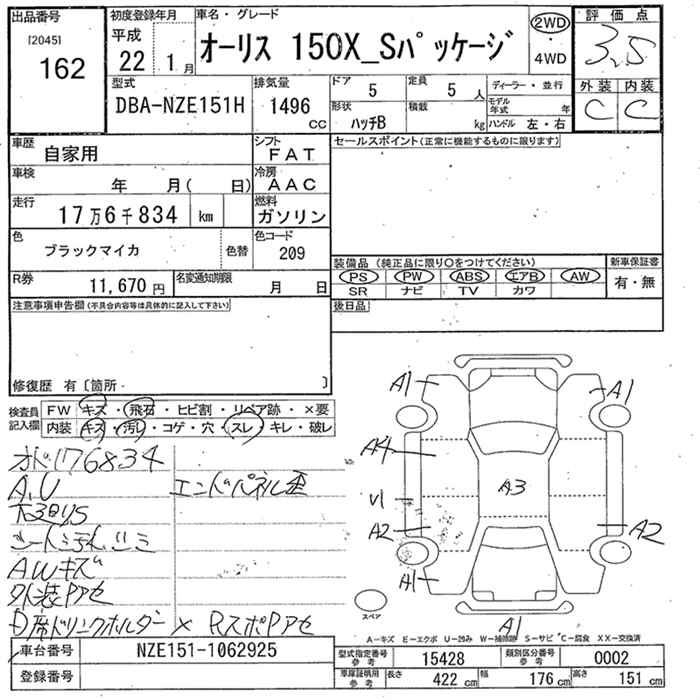 出品番号
[2045]
162
初度登録年月
平成
22年 1月
車名・グレード
オーリス 150X_Sパッケージ
2WD
・
4WD
評価点
3.5
外装 内装
C C
型式
DBA-NZE151H
排気量
1496
CC
ドア
5
定員
5人
形状
ハッチB
積載
kg
ディーラー・並行
モデル年式 年
ハンドル 左・右
車歴
自家用
シフト
FAT
車検
年 月( 日)
冷房
AAC
走行
17万6千834 km
燃料
ガソリン
色
ブラックマイカ
色替
色コード
209
R券
11,670円
名変通知期限
月 日
セールスポイント(正常に機能するものに限ります)
装備品(純正品に限り○をつけてください)
PS PW ABS エアB AW
SR ナビ TV カワ
新車保証書
有・無
後日品
注意事項申告欄(不具合内容等は具体的に記入して下さい)
修復歴 有〔箇所・ 〕
検査員記入欄
FW キズ・飛石・ヒビ割・リペア跡・×要
内装 キズ・汚レ・コゲ・穴・スレ・キレ・破レ
オド176834
A.U
エンドパネル歪
AWキズ
外装Pアセ
D席ドリンクホルダー× RスポPアセ
A1
A1
A4
A3
V1
A2
A2
A1
A1
スペア
A-キズ E-エクボ U-凹み W-補修跡 S-サビ C-腐食 XX-交換済
車台番号
NZE151-1062925
登録番号
型式指定番号
参考
15428
類別区分番号
参考
0002
車庫証明用
参考
長さ 422cm 幅 176cm 高さ 151cm